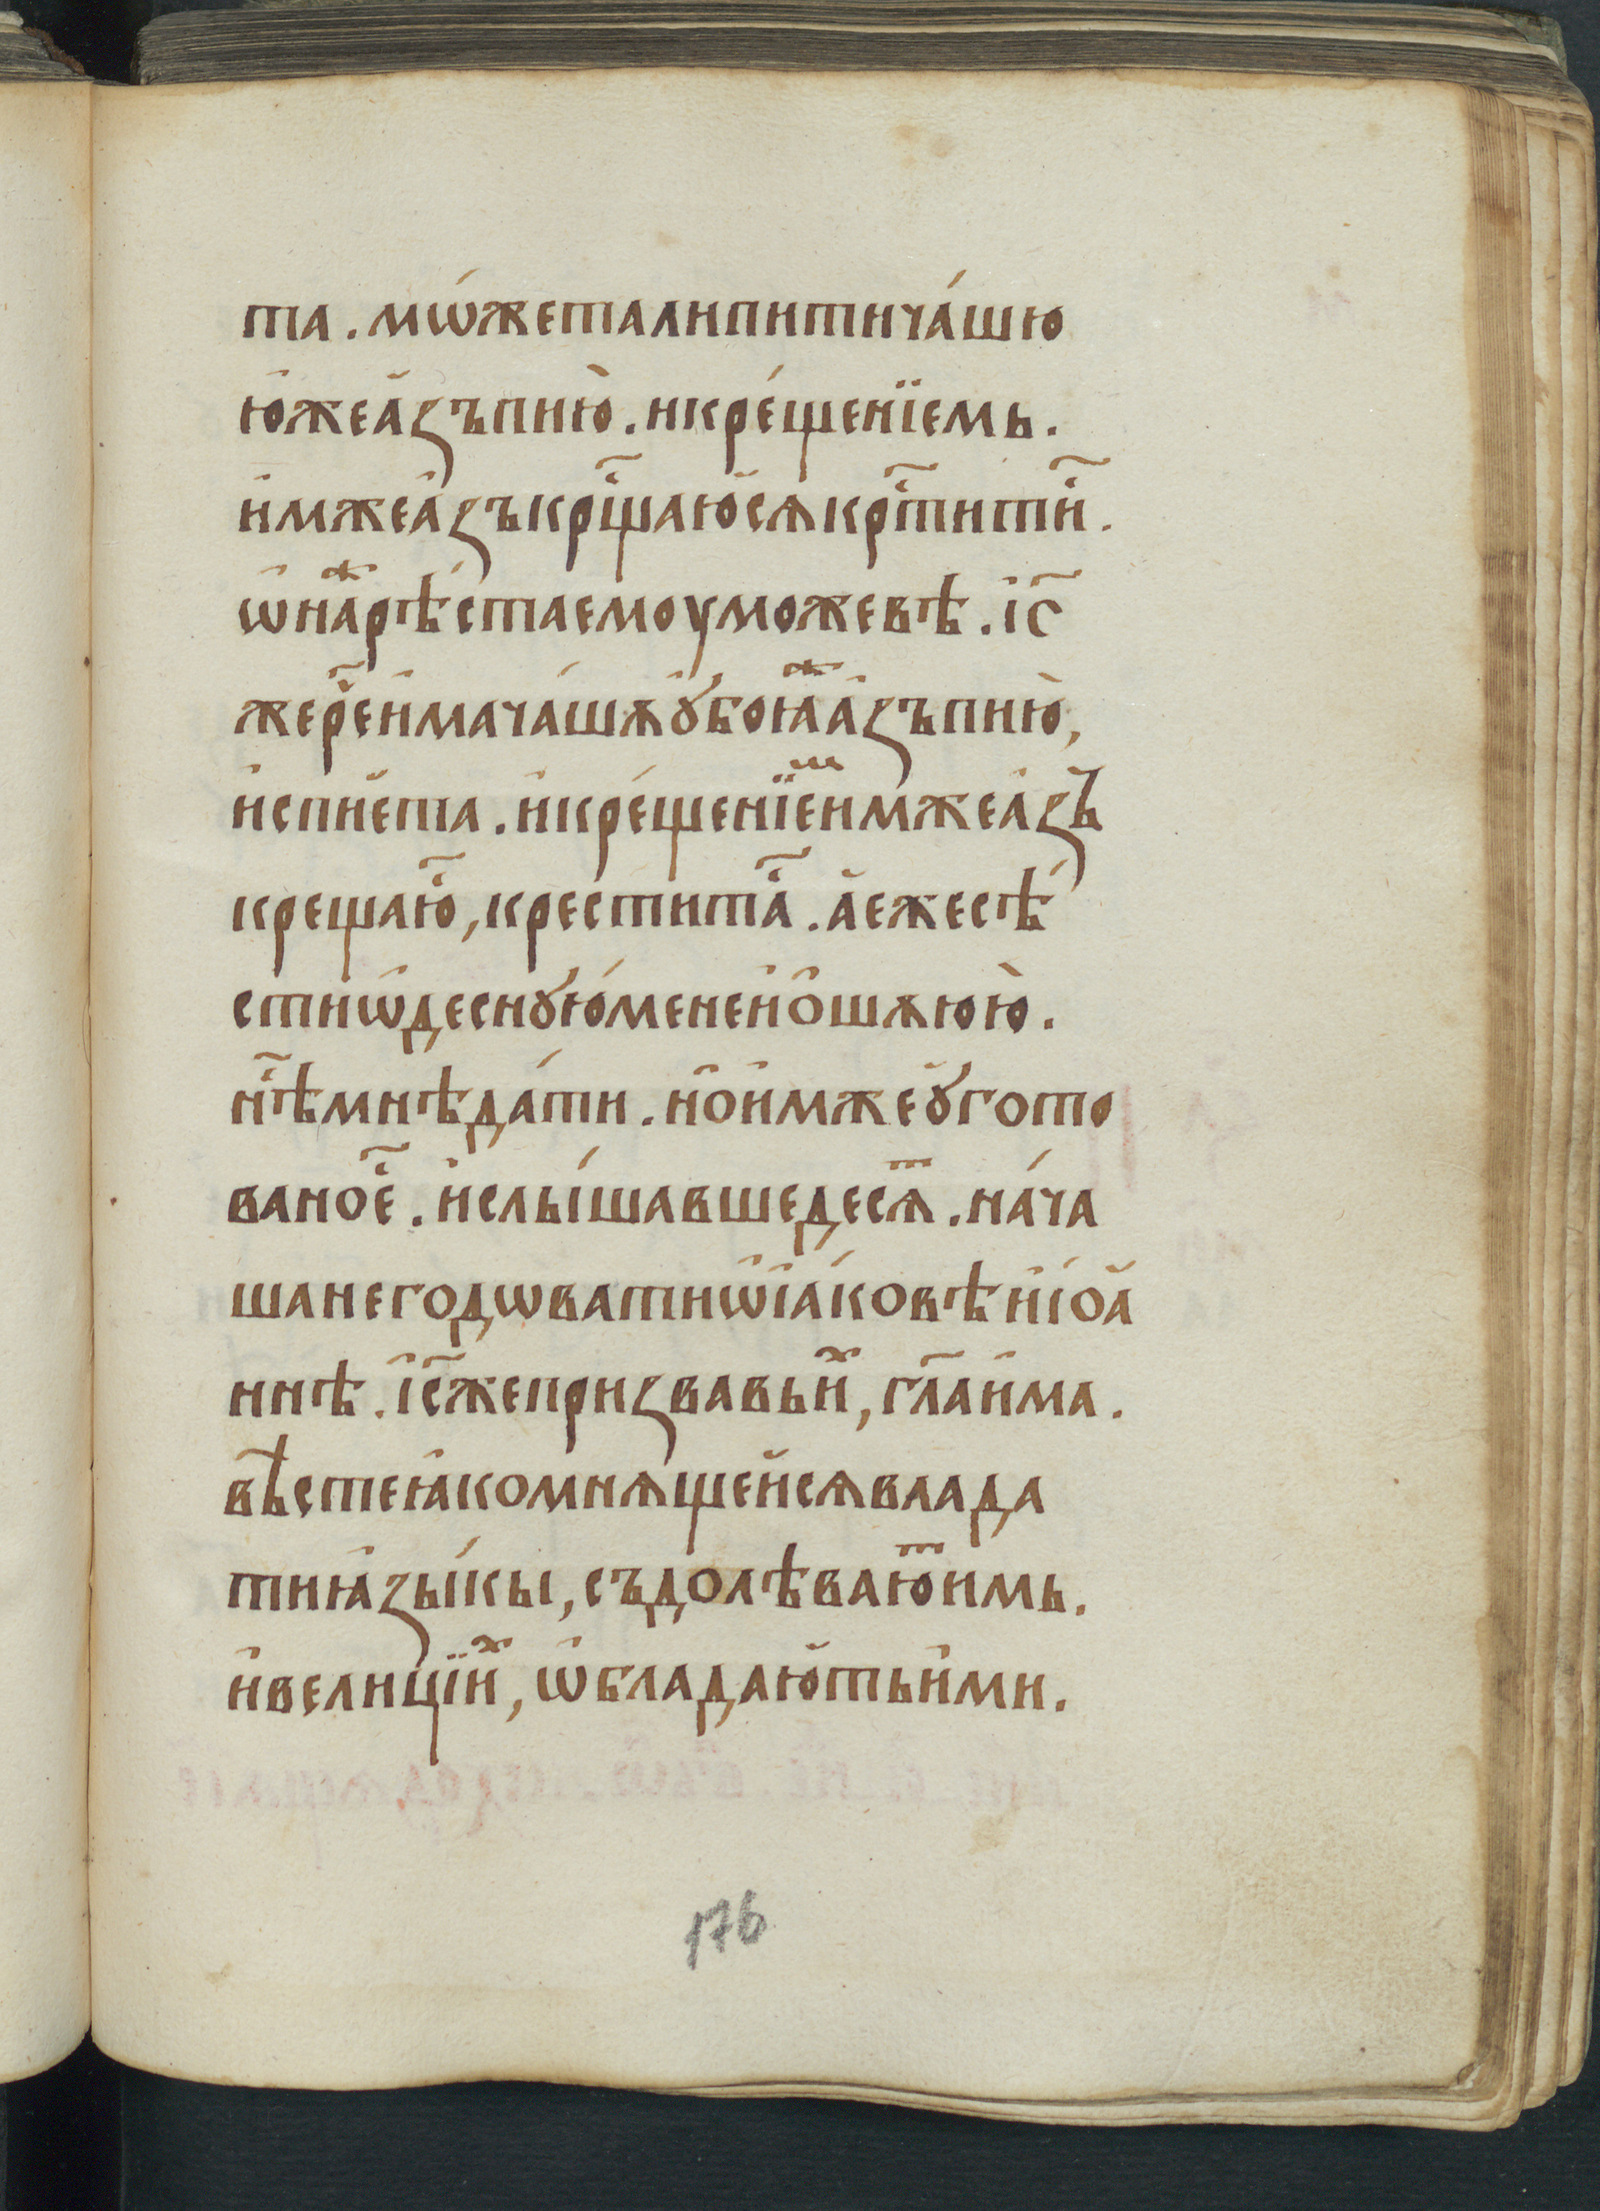 та . мѡ́жеталипитича́шю
ю҆жеа҆ꙁъпию̀ . икре́щенїемь .
и҆мжеа҆ꙁъкрі҃щаюся҆крі҃титі҃и .
ѡ҆наⷤрѣ́стаемоуможевѣ . іс҃
жере҃и҆мача́шѧꙋ҆боꙗ҆ⷤа҆ꙁъпию̀ ,
и҆спие҆та . и҆кре́щенїеⷨимжеа҆ꙁъ
крещаю҃ , креститаⷭ҇ . а҆ежесѣ́
стиѡ҆деснꙋю́менеи҆ѻ҆шѧюю̀ .
нⷭ҇ѣмнѣда́ти . нѻ҆и҆мжеꙋ҆гото
ваное҃ . и҆слы́шавшедесѧⷮ . на́ча
шанегодѡватиѡ҆іа́ковѣи҆іѻа҆
ннѣ . іс҃жепризвавъиⷯ , гл҃аи҆ма .
вѣ҃стеꙗ҆комнѧщеи҆сѧвлада
тиꙗ҆ꙁы́кы , съдолѣваюⷮимь .
и҆велиції̈иⷯ , ѡ҆бладаю҆тьи҆ми .
176